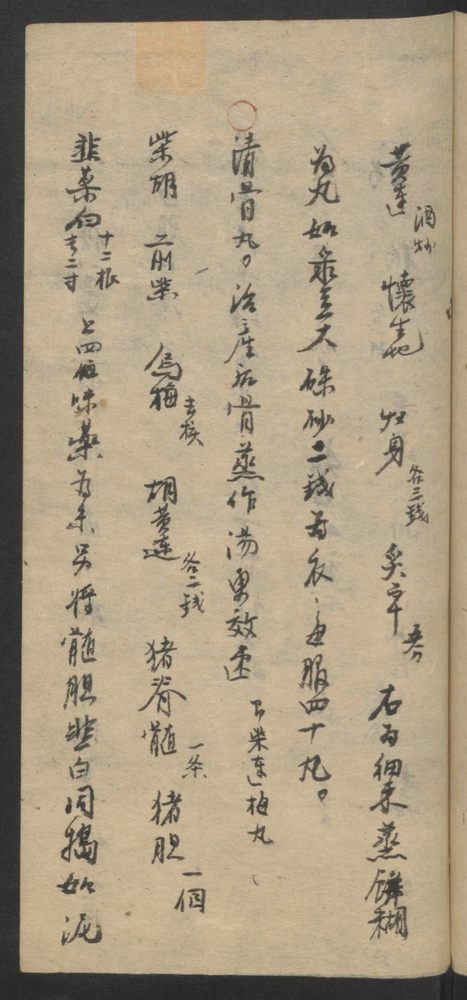 黄連酒炒 懷生地 归身各三錢 炙草五分 右為細末蒸餅糊
為丸如菉豆大硃砂二錢為衣每服四十丸
清骨丸治產后骨蒸作湯更效速 即柴連梅丸
柴胡 前柴 烏梅去核 胡黃連各二錢 猪脊髓一条 猪胆一個
韮菜白十二根 長二寸 上四味藥為末另將髓胆韮白同搗如泥